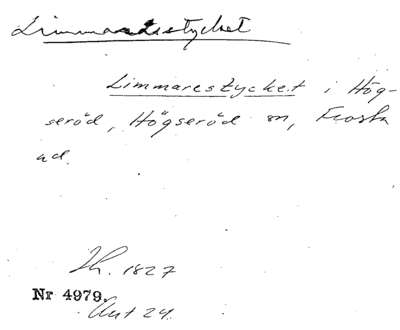 Limmarestycket
Limmarestycket i Hög-
seröd, Högseröd sn, Frosta
hd.
Ih. 1827
Nr 4979.
Aut 24.